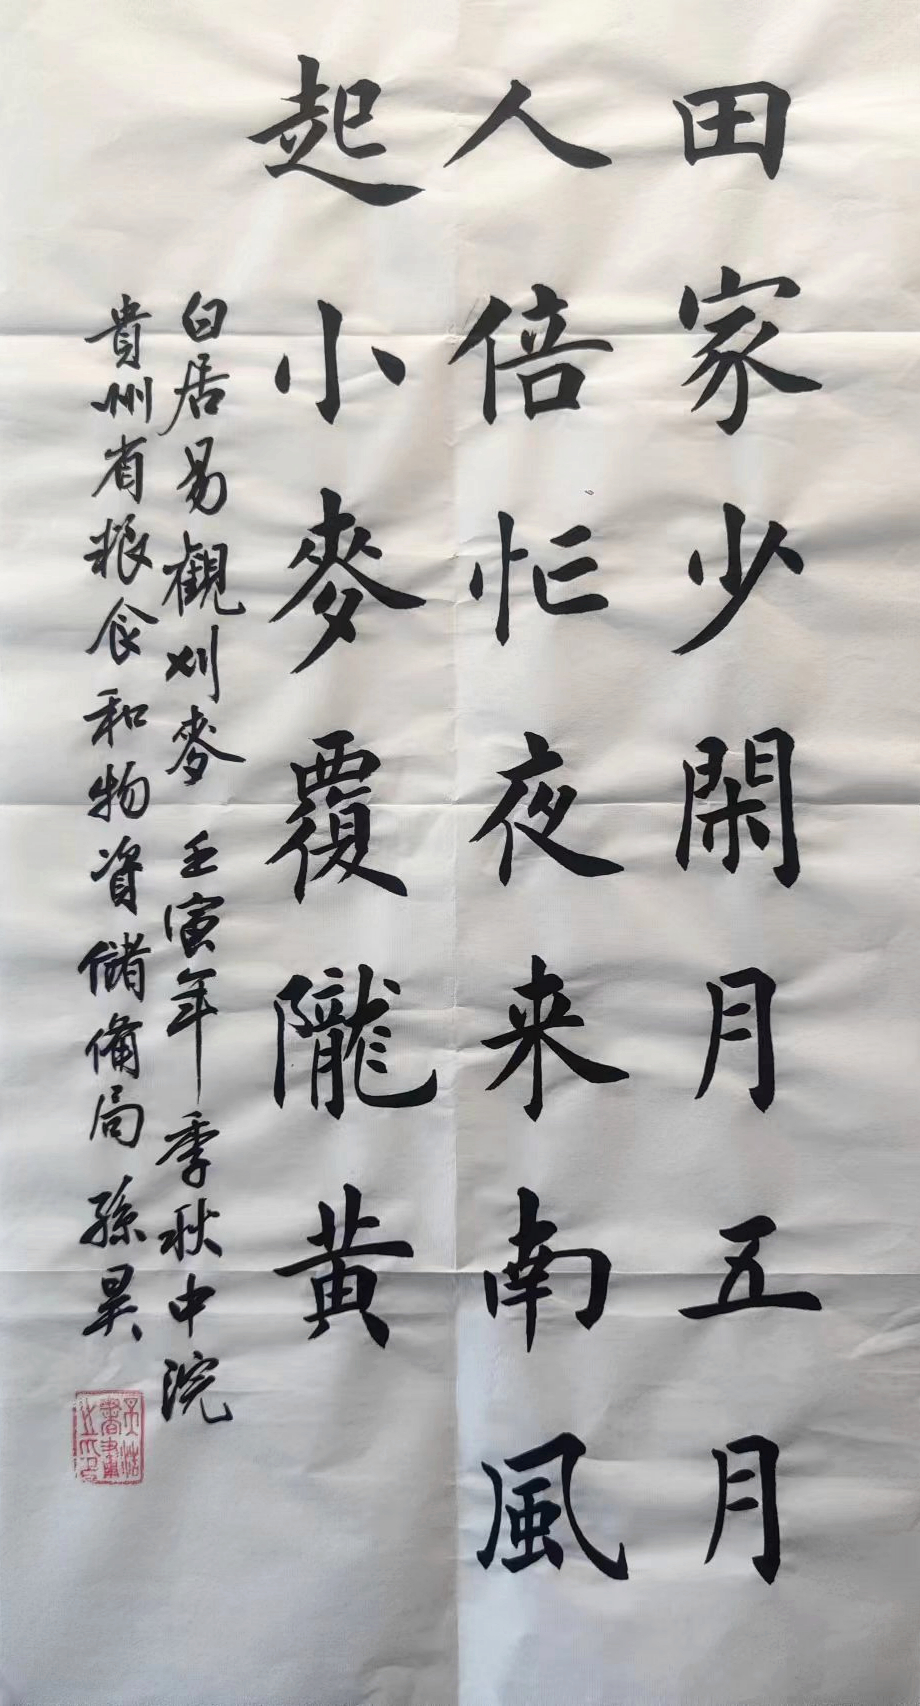 田家少閑月五月
人倍忙夜来南風
起小麥覆隴黄
白居易觀刈麥 壬寅年季秋中浣
貴州省粮食和物資儲備局 孫昊